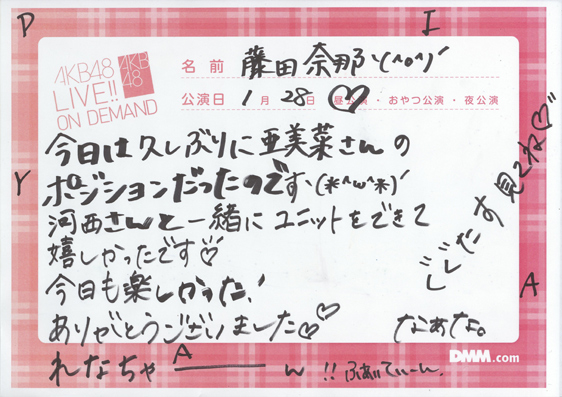 P
I
AKB48
LIVE!!
ON DEMAND
AKB
48
名前 藤田奈那ヽ(^o^)ノ
公演日 1月28日 昼公演・おやつ公演・夜公演
今日は久しぶりに亜美菜さんの
ポジションだったのですヽ(*^ω^*)ノ
河西さんと一緒にユニットをできて
嬉しかったです♡
今日も楽しかった!
ありがとうございました♡♡
Y
A
見てね♡
なぁな。
DMM.com
れなちゃ A ―― ん !! ふぁいてぃーん。